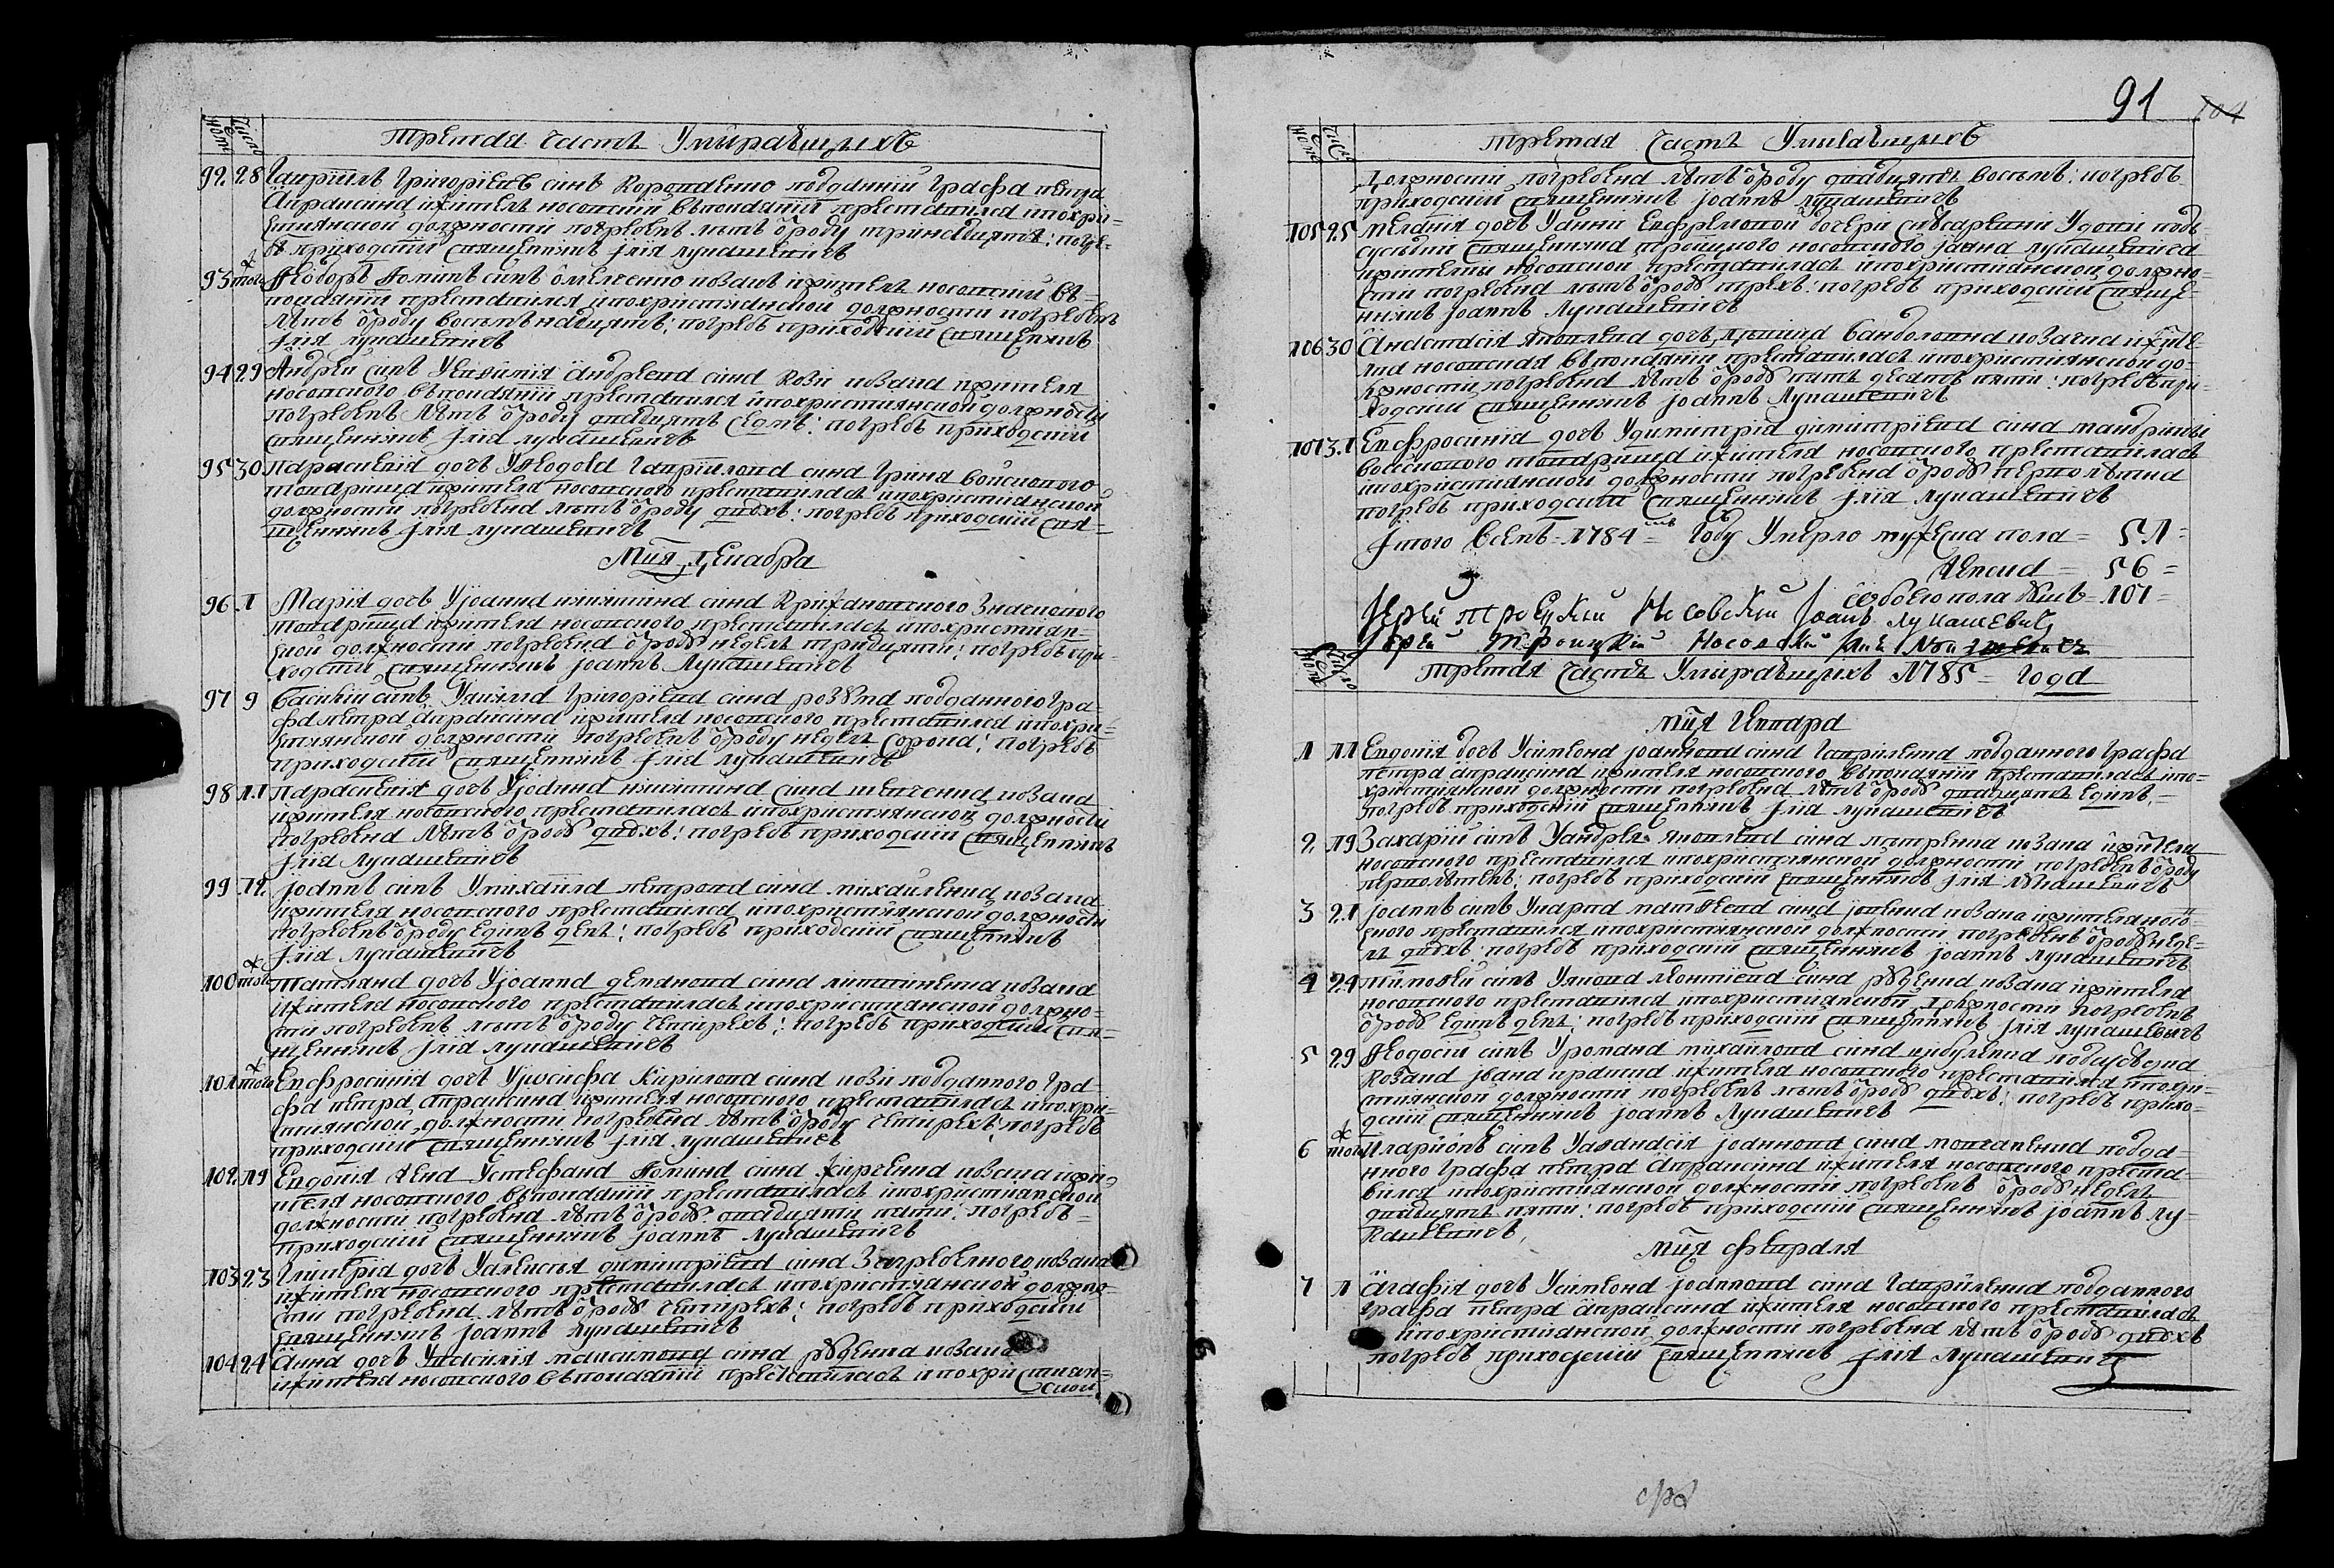 третая частъ Умираѣщихъ
92 28 Гавріилъ Григоріевъ синъ Короваенко подданній Графа петра
Апраѯина жителъ носовскій въпокаяніи преставился ипохри-
стиянской должности погребенъ лѣтъ ѿроду тринадцяти: погре-
бъ приходскій священникъ Іліа лукашевичъ
93 того Ѳеодоръ Ѳоминъ синъ ѡмелченко козакъ жителъ носовскій въ-
покаяніи преставился ипохристиянской должности погребенъ
лѣтъ ѿроду восѣмънадцятъ: погребъ приходскій священникъ
Іліа лукашевичъ
94 29 Андрей синъ Уевѳимія Андреева сина Кози козака жителя
носовского въпокаяніи преставился ипохристиянской должности
погребенъ лѣтъ ѿроду двадцятъ седмъ: погребъ приходскій
священникъ Іліа лукашевичъ
95 30 параскевія дочъ УѲеодора Гавріилова сина Гриня войскового
товариша жителя носовского преставиласъ ипохристиянской
должности погребена лѣтъ ѿроду двохъ: погребъ приходскій свя-
щенникъ Іліа лукашевичъ
Мця Декабра
96 1 Марія дочъ Уіоанна сина Крижановского Значкового
товариша жителя носовского преставиласъ ипохристиян-
ской должности погребена ѿроду неделъ тридцяти: погребъ при-
ходскій священникъ Іоаннъ Лукашевичъ
97 9 Василій синъ Григоріева сина подданного Гра-
фа петра Апраѯина жителя носовского преставился ипохри-
стиянской должности погребенъ ѿроду неделъ сорока: погребъ
приходскій священникъ Іліа лукашевичъ
98 11 параскевія дочъ Уіоанна сина шевченка козака
жителя носовского преставиласъ ипохристиянской должности
погребена лѣтъ ѿроду двохъ: погребъ приходскій священникъ
Іліа лукашевичъ
99 12 Іоаннъ синъ Умихаила петрова сина михайленка козака
жителя носовского преставился ипохристиянской должности
погребенъ ѿроду единъ денъ: погребъ приходскій священникъ
Іліа лукашевичъ
100 того татияна дочъ Уіоанна демянова сина литвиненка козака
жителя носовского преставиласъ ипохристиянской должно-
сти погребенъ лѣтъ ѿроду четирехъ: погребъ приходскій свя-
щенникъ Іліа лукашевичъ
101 того Евфросинія дочъ Уіосифа Кирилова сина кози подданного Гра-
фа петра Апраѯина жителя носовского преставиласъ ипохри-
стиянской должности погребена лѣтъ ѿроду четирехъ: погребъ
приходскій священникъ Іліа лукашевичъ
102 19 Евдокія жена Устефана Ѳомина сина козака жи-
теля носовского въпокаяніи преставиласъ ипохристиянской
должности погребена лѣтъ ѿроду двадцяти пяти: погребъ
приходскій священникъ Іоаннъ Лукашевичъ
103 23 Гликерія дочъ Уалеѯія димитріева сина Загребелного козака
жителя носовского преставиласъ ипохристиянской должно-
сти погребена лѣтъ ѿроду четирехъ: погребъ приходскій
священникъ Іоаннъ Лукашевичъ
104 24 Анна дочъ Увасилія маѯимова сина руденка козака
жителя носовского въпокаяніи преставиласъ ипохристиян-
ской
91
третая частъ Умираѣщихъ
Должности погребена лѣтъ ѿроду двадцятъ восѣмъ: погребъ
приходскій священникъ Іоаннъ Лукашевичъ
105 25 меланія дочъ Уанни Евфремовой дочери Удови подъ
сусѣдки священника троицкого носовского Іоанна лукашевича
жителки носовской преставиласъ ипохристиянской должно-
сти погребена лѣтъ ѿроду трехъ: погребъ приходскій свяще-
нникъ Іоаннъ Лукашевичъ
106 30 Анастасія яковлева дочъ козачка жите-
лка носовская въпокаяніи преставиласъ ипохристиянской до-
лжности погребена лѣтъ ѿроду пятъ десятъ пяти: погребъ при-
ходскій священникъ Іоаннъ Лукашевичъ
107 31 Евфросинія дочъ Удимитрія димитріева сина мандрики
войскового товариша жителя носовского преставиласъ
ипохристиянской должности погребена ѿроду перволѣтна
погребъ приходскій священникъ Іліа лукашевичъ
Ітого всемъ 1784 Году Умерло мужеска пола = 51 =
женска = 56 =
обоего пола душъ = 107 =
Іерей троецкій Несовскій Іоанъ Лукашевичъ
Іерей троицкій Носовскій Илія Лукашевичъ
третая частъ Умираѣщихъ 1785 = Года
мця Генвара
1 11 Евдокія дочъ Усимеона Іоаннова сина Гавриленка подданного Графа
петра Апраѯина жителя носовского въпокаяніи преставиласъ ипо-
християнской должности погребена лѣтъ ѿроду двадцятъ единъ
погребъ приходскій священникъ Іліа лукашевичъ
2 19 Захарій синъ Уандрея яковлева сина петренка козака жителя
носовского преставился ипохристиянской должности погребенъ ѿроду
перволѣтенъ: погребъ приходскій священникъ Іліа лукашевичъ
3 21 Іоаннъ синъ Укарпа матѳеева сина козака жителя носо-
вского преставился ипохристиянской должности погребенъ ѿроду неде-
лъ двохъ: погребъ приходскій священникъ Іоаннъ Лукашевичъ
4 24 тимоѳей синъ Уякова леонтіева сина руденка козака жителя
носовского преставился ипохристиянской Должности погребенъ
ѿроду единъ денъ: погребъ приходскій священникъ Іліа лукашевичъ
5 29 Ѳеодосій синъ Уромана михайлова сина подсусѣдка
Козака жителя носовского преставился ипохри-
стиянской должности погребенъ лѣтъ ѿроду двохъ: погребъ прихо-
дскій священникъ Іоаннъ Лукашевичъ
6 того Иларіонъ синъ Уаѳанасія Іоаннова сина подда-
нного Графа петра Апраѯина жителя носовского преста-
вился ипохристиянской должности погребенъ ѿроду неделъ
двадцятъ пяти: погребъ приходскій священникъ Іоаннъ Лу-
кашевичъ
мця февраля
7 1 Агафія дочъ Усимеона Іоаннова сина Гавриленка подданного
графа петра Апраѯина жителя носовского преставиласъ
ипохристиянской должности погребена лѣтъ ѿроду двохъ
погребъ приходскій священникъ Іліа Лукашевичъ